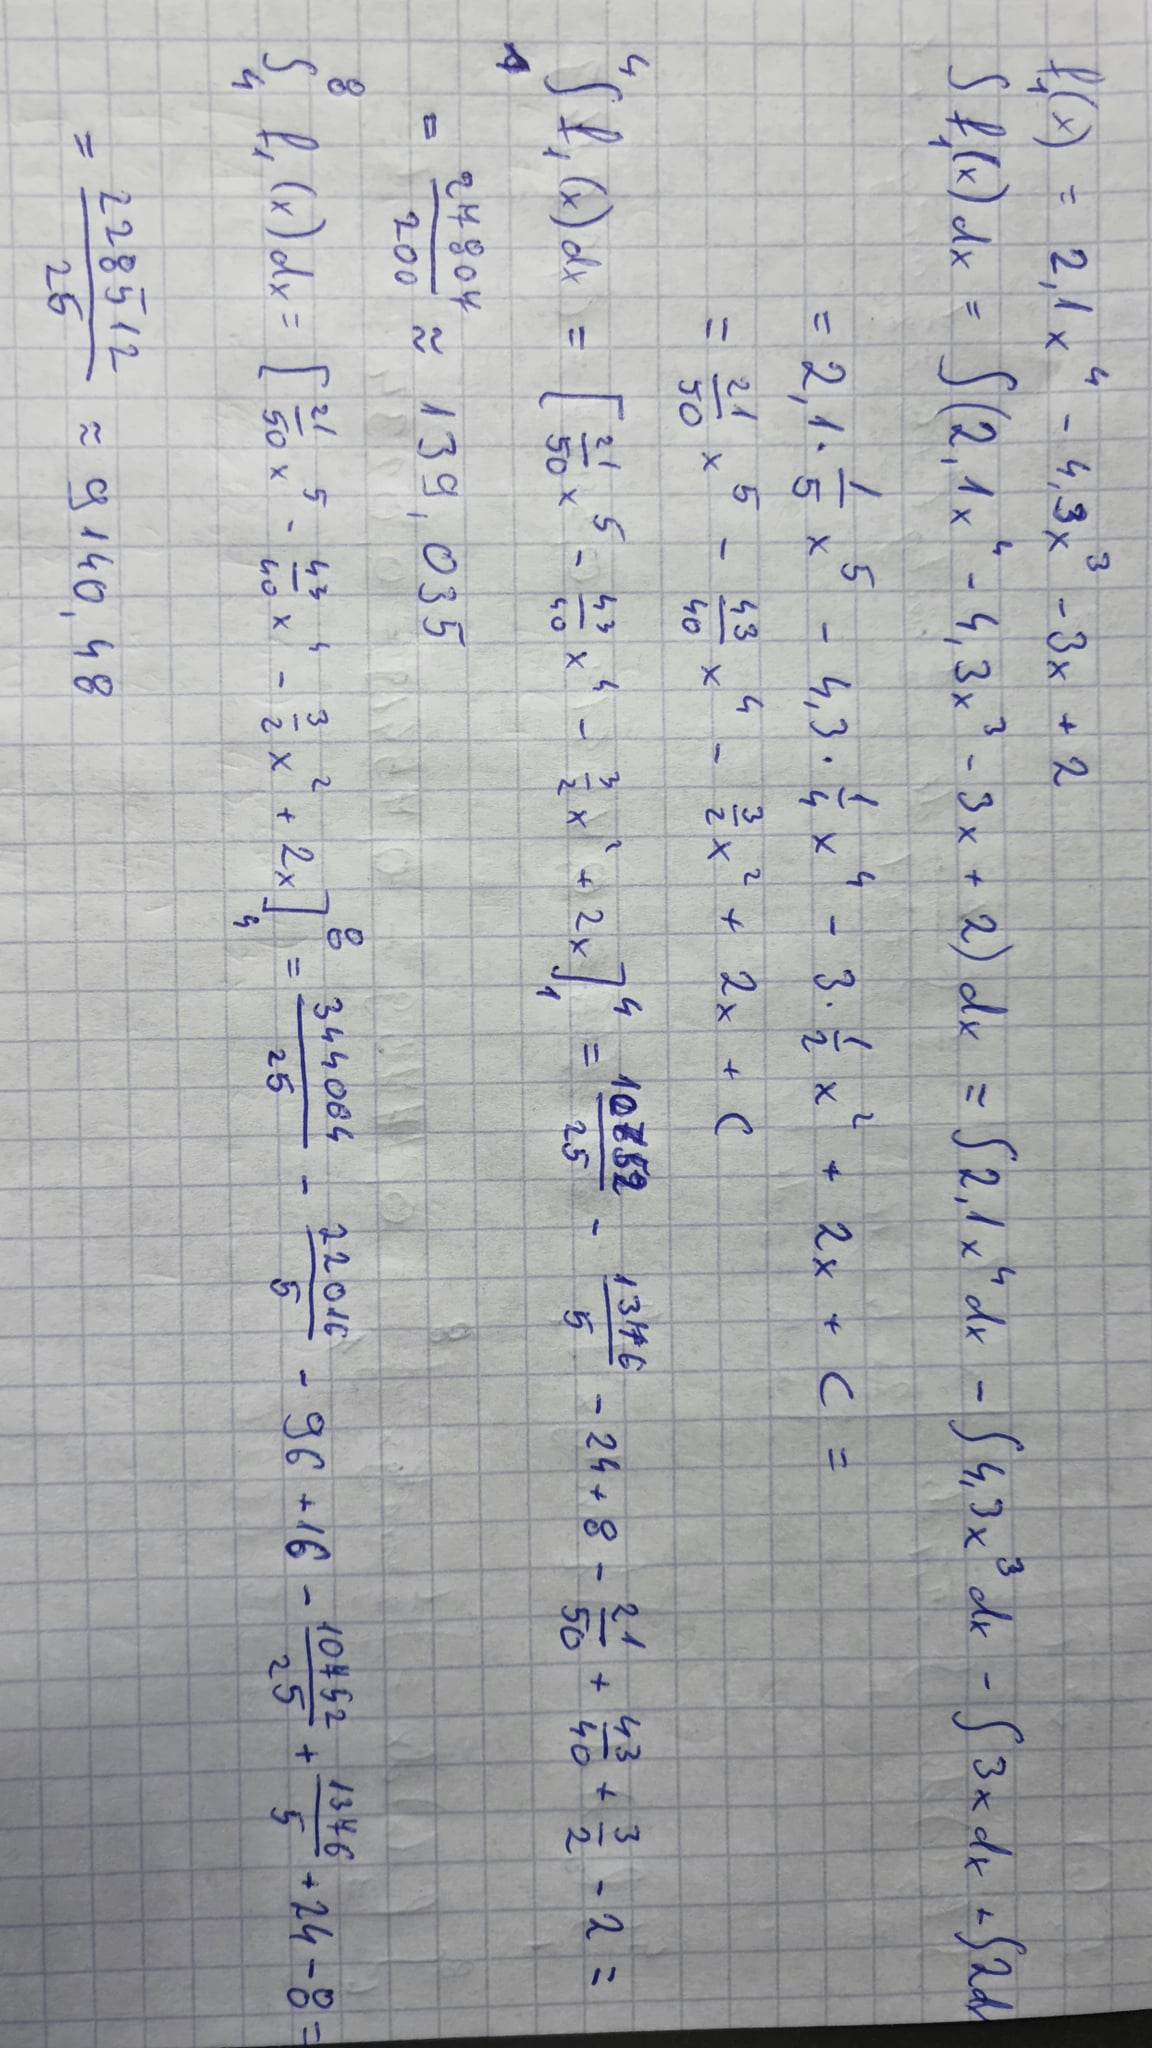 f₁(x) = 2,1x⁴ - 4,3x³ - 3x + 2
∫ f₁(x) dx = ∫(2,1x⁴ - 4,3x³ - 3x + 2) dx = ∫2,1x⁴ dx - ∫4,3x³ dx - ∫3x dx + ∫2dx
= 2,1 · 1/5 x⁵ - 4,3 · 1/4 x⁴ - 3 · 1/2 x² + 2x + C =
= 21/50 x⁵ - 43/40 x⁴ - 3/2 x² + 2x + C
∫₁⁴ f₁(x) dx = [21/50 x⁵ - 43/40 x⁴ - 3/2 x² + 2x]₁⁴ = 10752/25 - 1376/5 - 24 + 8 - 21/50 + 43/40 + 3/2 - 2 =
= 27807/200 ≈ 139,035
∫₄⁸ f₁(x) dx = [21/50 x⁵ - 43/40 x⁴ - 3/2 x² + 2x]₄⁸ = 344064/25 - 22016/5 - 96 + 16 - 10752/25 + 1376/5 + 24 - 8 =
= 228512/25 ≈ 9140,48